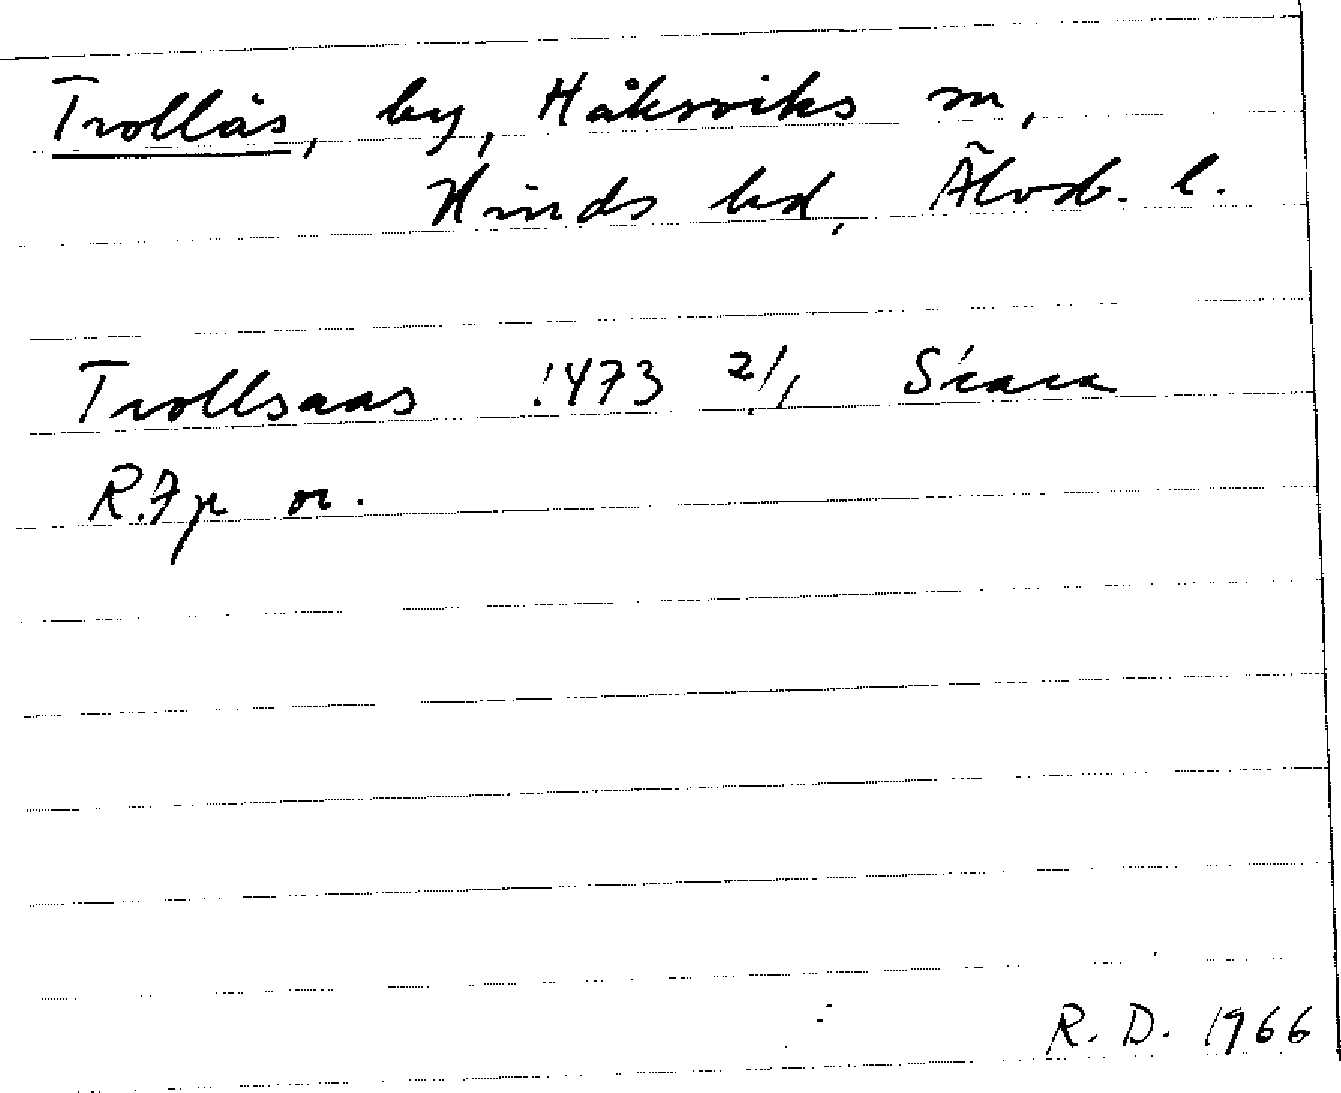 Trollås, by, Håksviks sn,
Kinds hd, Älvsb. l.
Trollsaas 1473 2/1 Scara
R.Ap or.
R. D. 1966